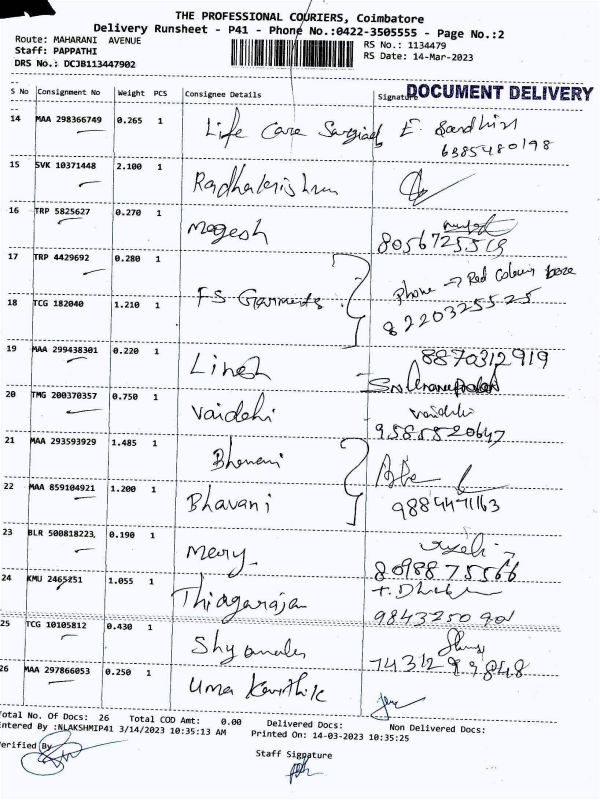 THE PROFESSIONAL COURIERS, Coimbatore
Delivery Runsheet - P41 - Phone No.:0422-3505555 - Page No.:2
Route: MAHARANI AVENUE
Staff: PAPPATHI
DRS No.: DCJB113447902
RS No.: 1134479
RS Date: 14-Mar-2023
S No Consignment No Weight PCS Consignee Details Signature DOCUMENT DELIVERY
14 MAA 298366749 0.265 1 Life Care Surgical E. Sandhiya
6385480198
15 SVK 10371448 2.100 1 Radhakrishnan
16 TRP 5825627 0.270 1 Mogesh
8056725519
17 TRP 4429692 0.280 1 Phone → Red Colour
18 TCG 182040 1.210 1 FS Garments 8220325525
19 MAA 299438301 0.220 1 Linesh 8870312919
20 TMG 200370357 0.750 1 Vaidehi Vaidehi
9585820647
21 MAA 293593929 1.485 1 Bhavani
22 MAA 859104921 1.200 1 Bhavani 9884471163
23 BLR 500818223 0.190 1 Mery
8098875566
24 KMU 2465251 1.055 1 Thiagarajan
25 TCG 10105812 0.430 1 Shyamala
7431299848
26 MAA 297866053 0.250 1 Uma Karthik
Total No. Of Docs: 26 Total COD Amt: 0.00 Delivered Docs: Non Delivered Docs:
Entered By :NLAKSHMIP41 3/14/2023 10:35:13 AM Printed On: 14-03-2023 10:35:25
Verified By
Staff Signature